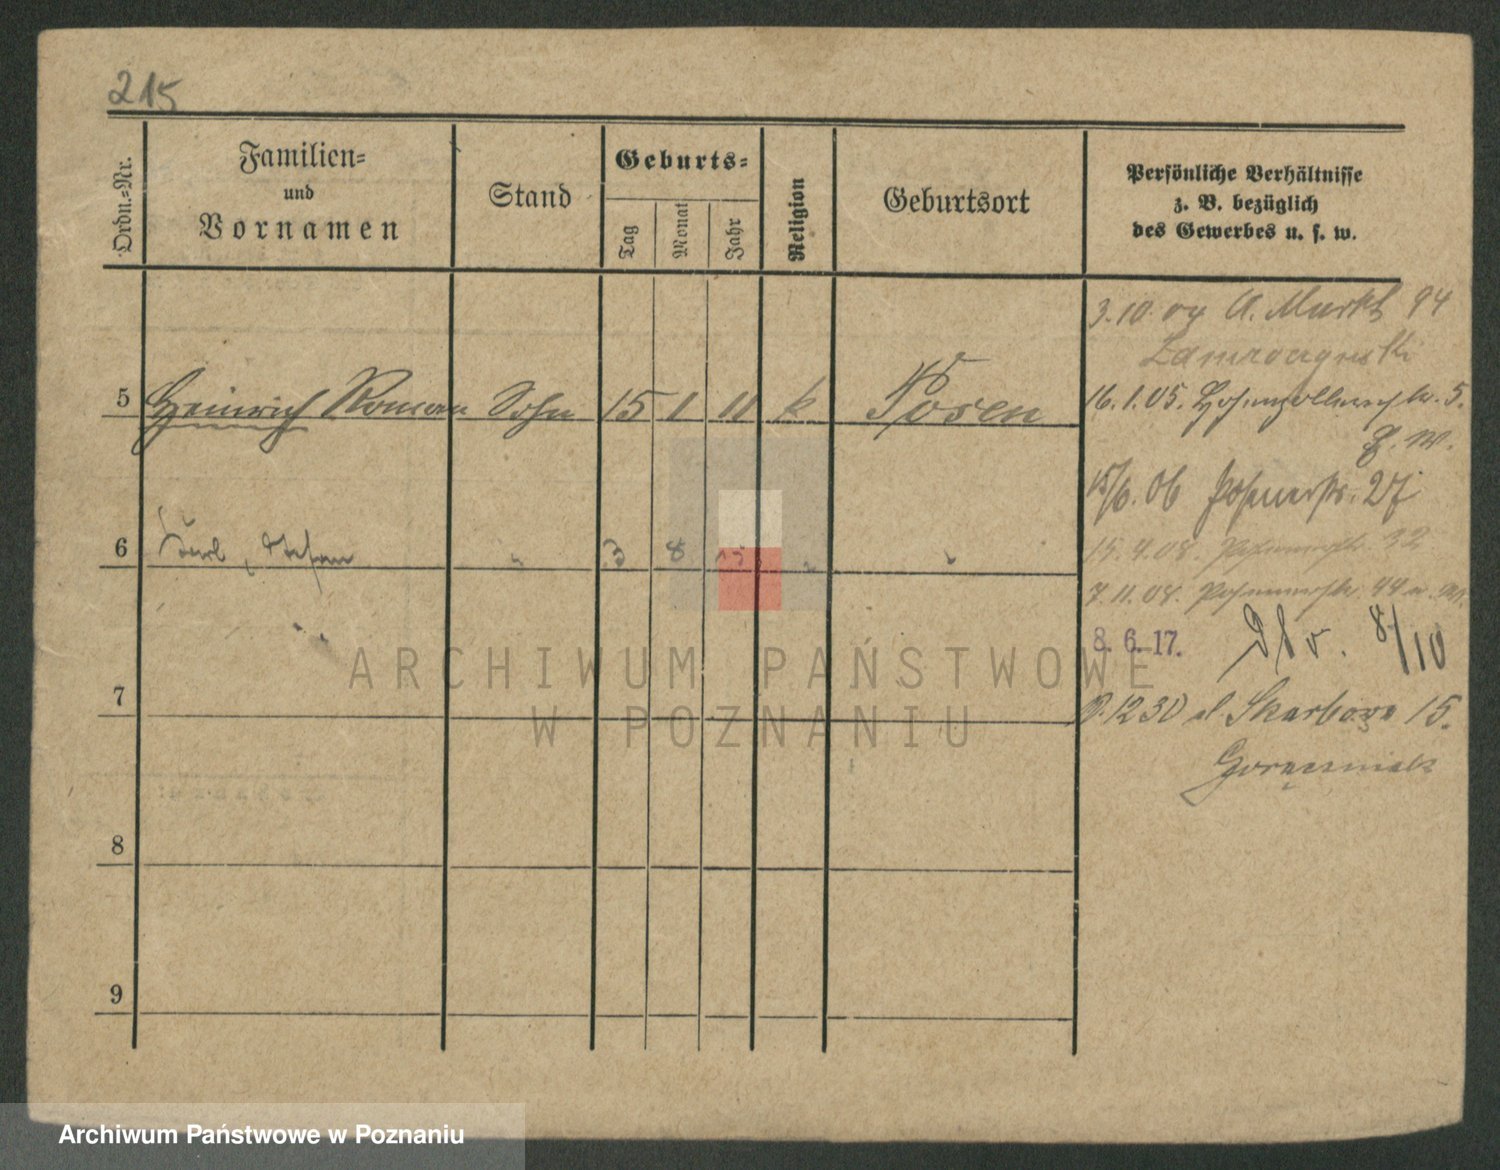 215
Ordn.-Nr.
Familien-
und
Vornamen
Stand
Geburts-
Tag
Monat
Jahr
Religion
Geburtsort
Persönliche Verhältnisse
z. B. bezüglich
des Gewerbes u. s. w.
3.10.04 A. Markt 94
5 Heinrich Roman Sohn 15 1 11 k Posen
16.1.05. Hohenzollernstr. 5.
15/6.06 Posenerstr. 27
6 Karl, Stefan 3 8 15
15.4.08. Posenerstr. 32
7.11.08. Posenerstr. 44
8. 6. 17.
8/10
7
P. 1230 ul Skarbowa 15.
8
9
ARCHIWUM PAŃSTWOWE
W POZNANIU
Archiwum Państwowe w Poznaniu